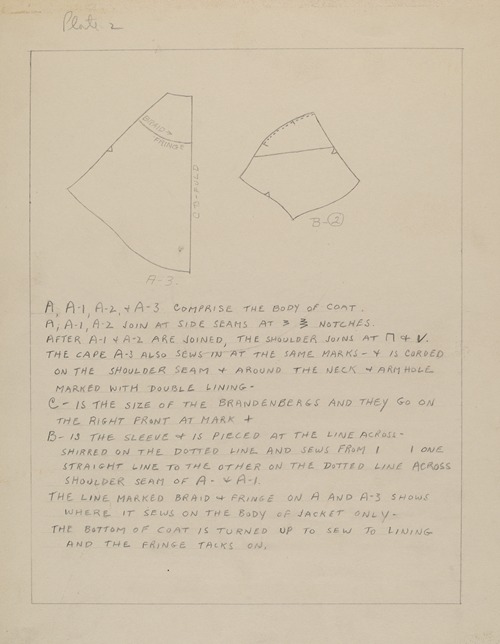 Plate 2
BRAID &
FRINGE
A-3.
B-2
A, A-1, A-2, & A-3 COMPRISE THE BODY OF COAT.
A, A-1, A-2 JOIN AT SIDE SEAMS AT NOTCHES.
AFTER A-1 & A-2 ARE JOINED, THE SHOULDER JOINS AT ⊓ & V.
THE CAPE A-3 ALSO SEWS IN AT THE SAME MARKS - & IS CORDED
ON THE SHOULDER SEAM & AROUND THE NECK & ARMHOLE
MARKED WITH DOUBLE LINING -
C - IS THE SIZE OF THE BRANDENBERGS AND THEY GO ON
THE RIGHT FRONT AT MARK +
B - IS THE SLEEVE & IS PIECED AT THE LINE ACROSS -
SHIRRED ON THE DOTTED LINE AND SEWS FROM 1 1 ONE
STRAIGHT LINE TO THE OTHER ON THE DOTTED LINE ACROSS
SHOULDER SEAM OF A- & A-1.
THE LINE MARKED BRAID & FRINGE ON A AND A-3 SHOWS
WHERE IT SEWS ON THE BODY OF JACKET ONLY -
THE BOTTOM OF COAT IS TURNED UP TO SEW TO LINING
AND THE FRINGE TACKS ON.